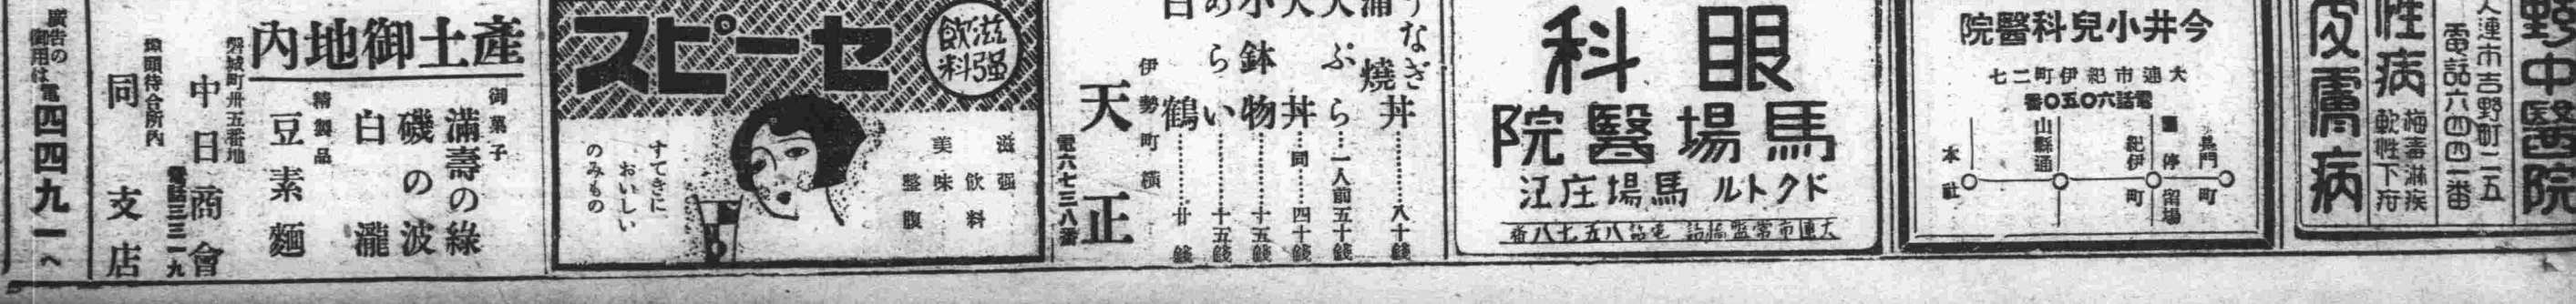 野中醫院
大連市吉野町二五
電話六四四一番
性病
梅毒淋疾
軟性下疳
皮膚病
今井小兒科醫院
大連市紀伊町二七
電話六〇五〇番
長門町
電停留場
紀伊町
山縣通
本社
眼科
馬場醫院
ドクトル 馬場庄江
大連市常盤橋詰 電話八五七八番
うなぎ丼………八十錢
蒲燒
天ぷら…一人前五十錢
天丼…同…四十錢
小鉢物………十五錢
あらい………十五錢
白鶴………廿錢
伊勢町橫
天正
電六七三八番
滋强飮料
セーピス
滋强飮料
美味整腹
すてきに
おいしい
のみもの
內地御土產
御菓子
滿壽の綠
磯の波
白瀧
精製品
豆素麵
磐城町卅五番地
中日商會
電話三三一九
埠頭待合所內
同支店
廣告の御用は電四四九一へ